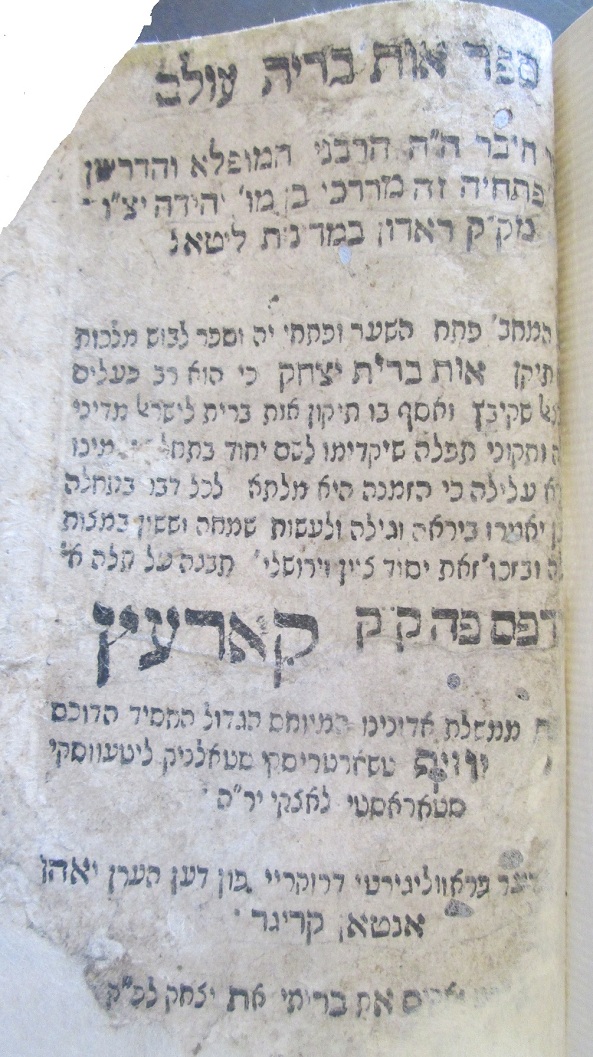 ספר אות ברית עולם
חיבר ה"ה הרבני המופלא והדרשן
פתחיה זה מרדכי בן מו' יהידה יצ"ו
מק"ק ראדון במדינת ליטא
המחב' פתח השער ופתחי יה וספר לבוש מלכות
תיקן אות ברית יצחק כי הוא רב פעלים
שקיבץ ואסף בו תיקון אות ברית לישראל
ותקוני תפלה שיקדימו לשם יחוד
עלילה כי הזמנה היא מלתא לכל דבר בתחלה
יאמרו ביראה וגילה ולעשות שמחה וששון במצות
ובזכו' זאת יסוד ציון וירושלי' תבנה על תלה
דפס פה ק"ק קארעץ
ממשלת אדונינו המיוחס הגדול החסיד הדוכס
יוזיף טשארטריסקי סטאלניק ליטעווסקי
סטאראסטי לאצקי יר"ה
פראווליגירטי דרוקריי פון דען הערן יאהן
אנטאן קריגר
את בריתי את יצחק לפ"ק